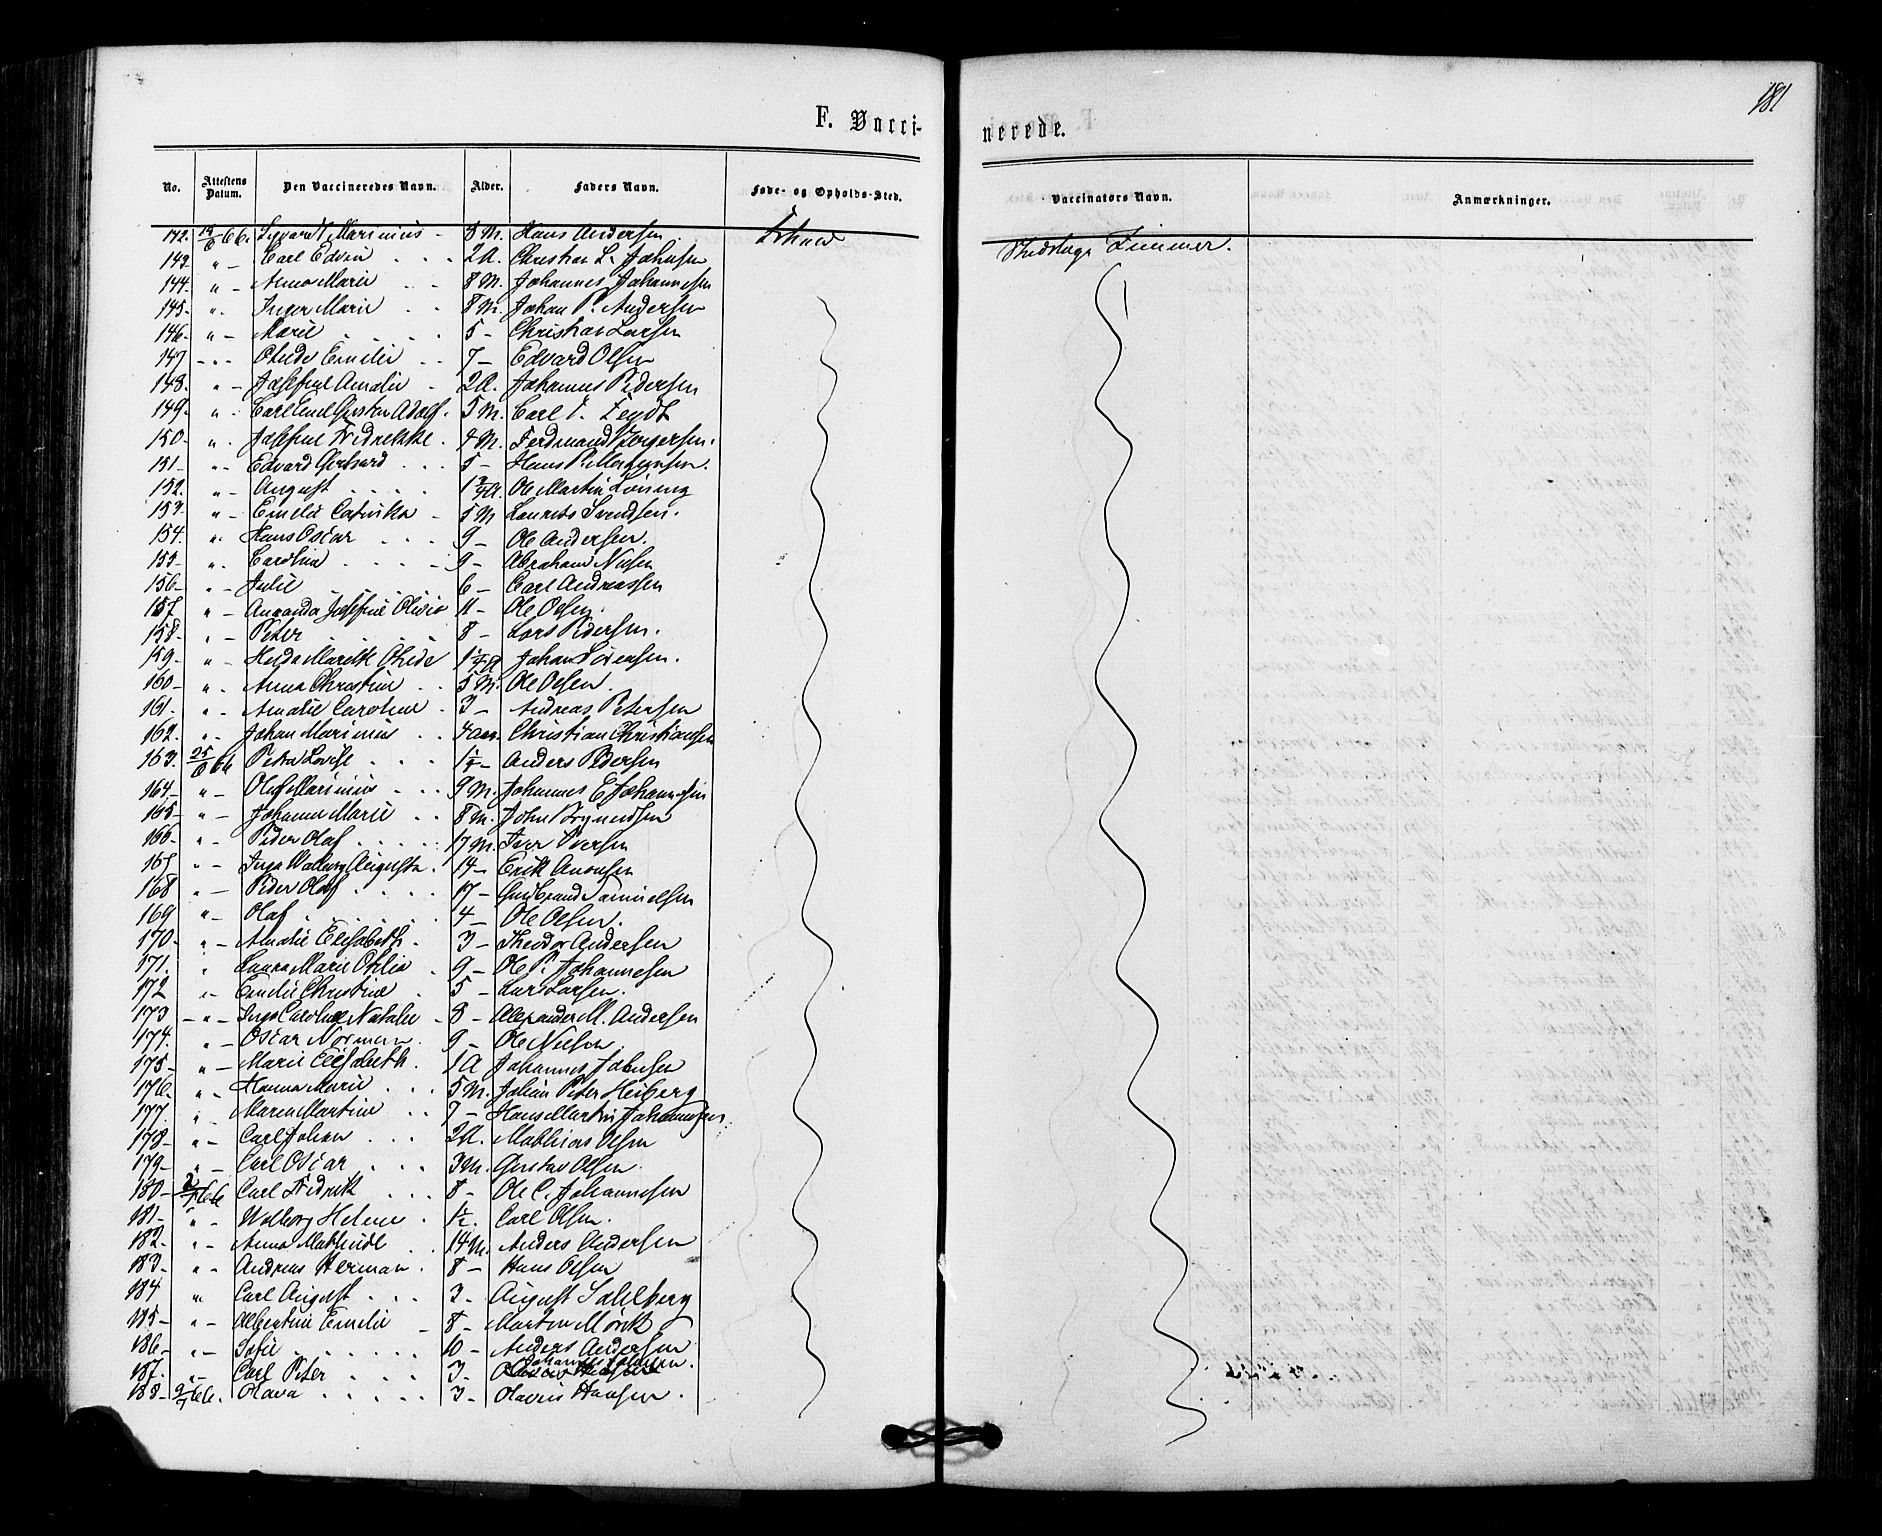 181
F. Vacci-
nerede.
No. Attestens Datum. Den Vaccineredes Navn. Alder. Faders Navn. Føde- og Opholds-Sted. Vaccinators Navn. Anmærkninger.
142. 66. Marinius - 8 M. Hans Andersen
Zimmer.
143 " - Carl Edvin 2 A. Christian L. Johnsen
144. " - Anna Marie 8 M. Johannes Johannesen
145. " Inger Marie 8 M. Johan P. Andersen
146 " - Marie 5 - Christian Larsen
147 - " - Emilie 7 - Edvard Olsen
148. " - Josefine Amalie - 2 A. Johannes Pedersen
149. " Carl Emil Gustav Adolf. 5 M. Carl
150. " Josefine Fredrekke. 4 M. Ferdinand Jørgensen.
151 - " - Edvard Gerhard 5 - Hans
152. " - August 1 3/4 A. Ole Martin
153. " - Emilie Catinka - 5 M Laurits Svendsen.
154. " Hans Oscar 9 - Ole Andersen.
155 - " Caroline 9 - Abraham Nilsen
156 - " - Julie 6 - Carl Andreassen
157. " - Amanda Josefine Olivia 11 - Ole Olsen.
158 - " - Peter 8 - Lars Pedersen.
159. " - Johan Sørensen.
160 - " - Anna Christine 5 M. Ole Olsen.
161. " - Amalie Caroline. 3 - Andreas Petersen
162. " - Johan Marinius 4 aar. Christian Christiansen
163. 25/6 66 Petra Lovise Anders Pedersen
164 - " - Oluf Marinius 9 M. Johannes E Johannesen
165 - " - Johanne Marie 8 M. John
166 - " - Peder Olaf 17 M. Iver Iversen
167 " - Inga Walborg Augusta. 14 - Erik
168 " - Peder Olaf 17 - Gudbrand Samuelsen
169 " - Olaf 4 - Ole Olsen.
170 - " - Amalie Elisabeth. 3 - Theodor Andersen
171. " Laura Marie Otilia. 9 - Ole P. Johannesen
172 " - Emelie Christine 5 - Lars Larsen.
173 - " - Inga Caroline Natalie - 8 - Alexander M. Andersen
174. " - Oscar Norman. 9 - Ole Nielsen
175 - " - Marie Elisabeth. 1 A Johannes Johnsen
176. " - Hanna Marie 5 M. Johan Peter Heiberg
177. " Maren Martine 7 - Hans Martin Johannesen
178 - " - Carl Johan 2 A. Mathias Olsen
179 - " - Carl Oscar 3 M. Gustav Olsen
180 - 2/7 66 Carl Fredrik 8 - Ole C. Johannesen
181 - " - Walborg Helene 1 1/2. Carl Olsen.
182. " - Anna Mathilde 14 M. Anders Andersen
183. " - Andreas Herman. 8 - Hans Olsen
184 " Carl August 3 - August Sahlberg
185 - " - Albertine Emelie - 8 - Martin Mørk
186 - " - Sofie 10 - Anders Andersen
187. " - Carl Peter 3 - Johannes Johnsen.
188 - 9/7 66. Olava 3 - Olavus Hansen.